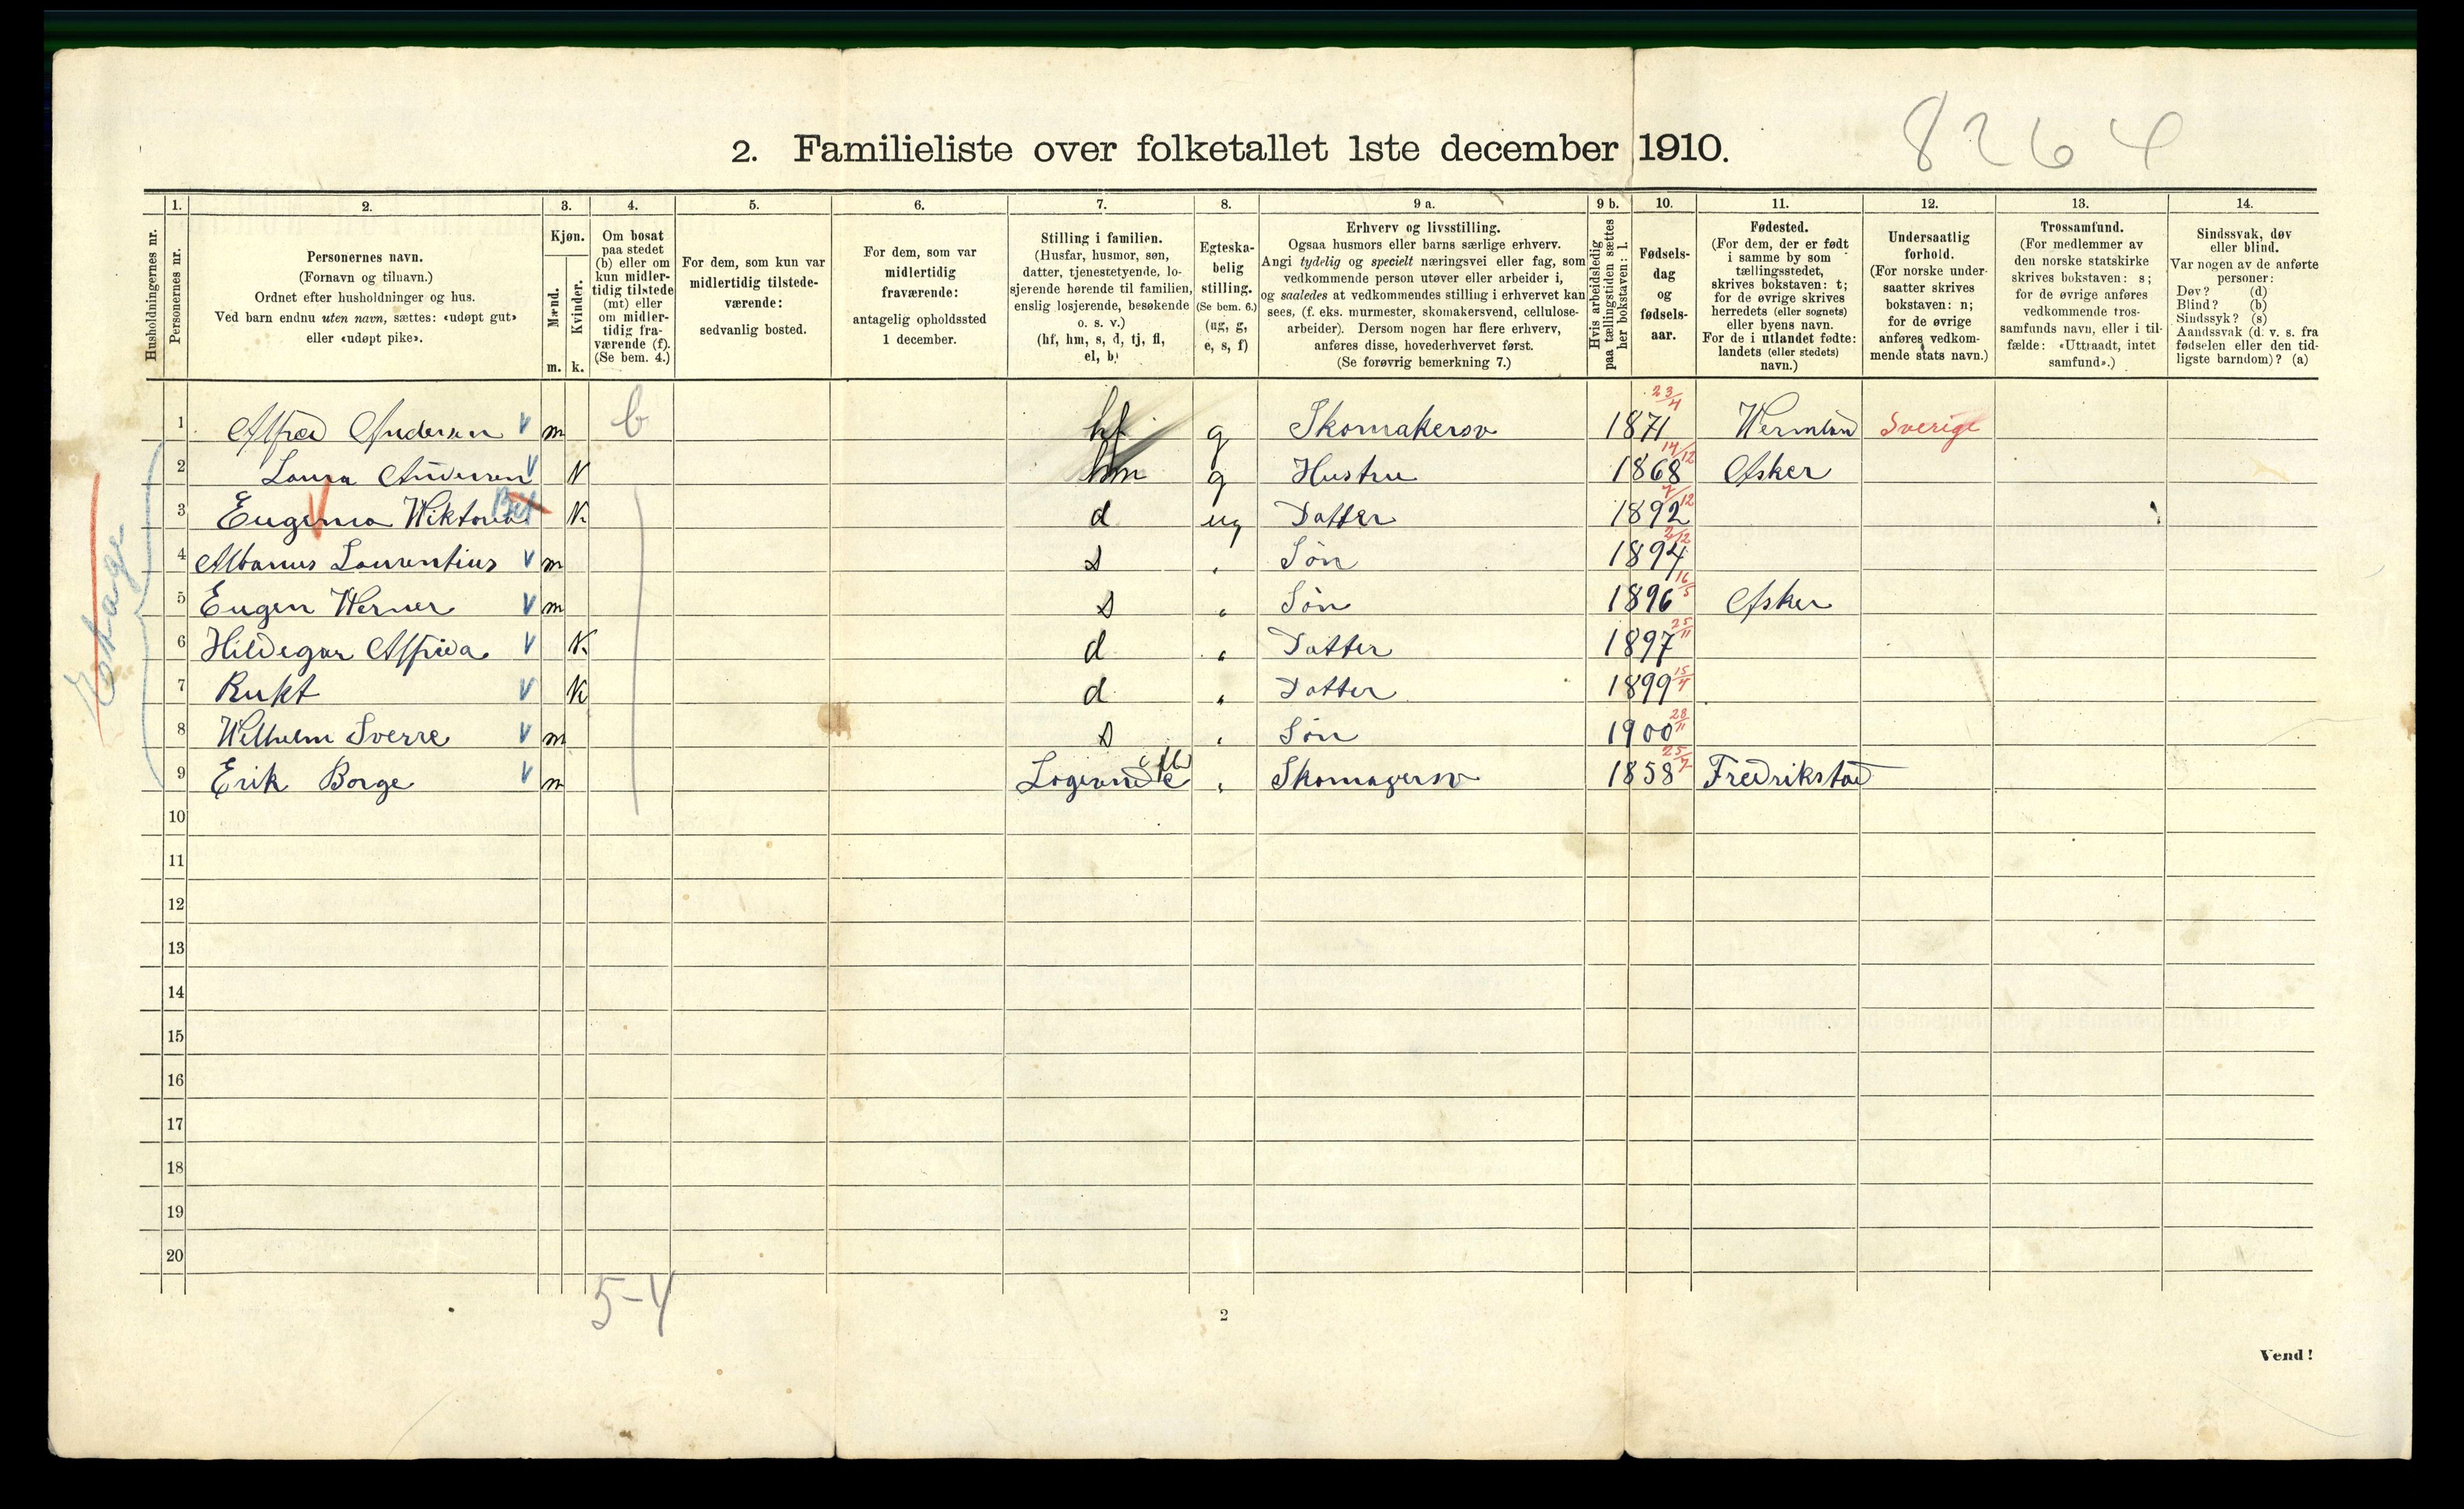 8264
2. Familieliste over folketallet 1ste december 1910.
1. 2. 3. 4. 5. 6. 7. 8. 9 a. 9 b. 10. 11. 12. 13. 14.
Husholdningernes nr.
Personernes nr.
Personernes navn.
(Fornavn og tilnavn.)
Ordnet efter husholdninger og hus.
Ved barn endnu uten navn, sættes: «udøpt gut»
eller «udøpt pike».
Kjøn.
Mænd.
m.
Kvinder.
k.
Om bosat
paa stedet
(b) eller om
kun midler-
tidig tilstede
(mt) eller
om midler-
tidig fra-
værende (f).
(Se bem. 4.)
For dem, som kun var
midlertidig tilstede-
værende:
sedvanlig bosted.
For dem, som var
midlertidig
fraværende:
antagelig opholdssted
1 december.
Stilling i familien.
(Husfar, husmor, søn,
datter, tjenestetyende, lo-
sjerende hørende til familien,
enslig losjerende, besøkende
o. s. v.)
(hf, hm, s, d, tj, fl,
el, b)
Egteska-
belig
stilling.
(Se bem. 6.)
(ug, g,
e, s, f)
Erhverv og livsstilling.
Ogsaa husmors eller barns særlige erhverv.
Angi tydelig og specielt næringsvei eller fag, som
vedkommende person utøver eller arbeider i,
og saaledes at vedkommendes stilling i erhvervet kan
sees, (f. eks. murmester, skomakersvend, cellulose-
arbeider). Dersom nogen har flere erhverv,
anføres disse, hovederhvervet først.
(Se forøvrig bemerkning 7.)
Hvis arbeidsledig
paa tællingstiden sættes
her bokstaven: l.
Fødsels-
dag
og
fødsels-
aar.
Fødested.
(For dem, der er født
i samme by som
tællingsstedet,
skrives bokstaven: t;
for de øvrige skrives
herredets (eller sognets)
eller byens navn.
For de i utlandet fødte:
landets (eller stedets)
navn.)
Undersaatlig
forhold.
(For norske under-
saatter skrives
bokstaven: n;
for de øvrige
anføres vedkom-
mende stats navn.)
Trossamfund.
(For medlemmer av
den norske statskirke
skrives bokstaven: s;
for de øvrige anføres
vedkommende tros-
samfunds navn, eller i til-
fælde: «Uttraadt, intet
samfund».)
Sindssvak, døv
eller blind.
Var nogen av de anførte
personer:
Døv? (d)
Blind? (b)
Sindssyk? (s)
Aandssvak (d. v. s. fra
fødselen eller den tid-
ligste barndom)? (a)
1 Alfred Andersen m b hf g Skomakersv 23/4 1871 Wermland Sverige
2 Laura Andersen k hm g Hustru 14/12 1868 Asker
3 Eugenia Wiktoria k d ug Datter 7/12 1892
4 Albanus Laurentius m s " Søn 2/12 1894
5 Eugen Werner m s " Søn 16/5 1896 Asker
6 Hildegar Alfrida k d " Datter 25/11 1897
7 Rukt k d " Datter 15/4 1899
8 Wilhelm Sverre m s " Søn 28/11 1900
9 Erik Borge m Logerende " Skomagersv 25/7 1858 Fredrikstad
10
11
12
13
14
15
16
17
18
19
20
5-4
2
Vend!